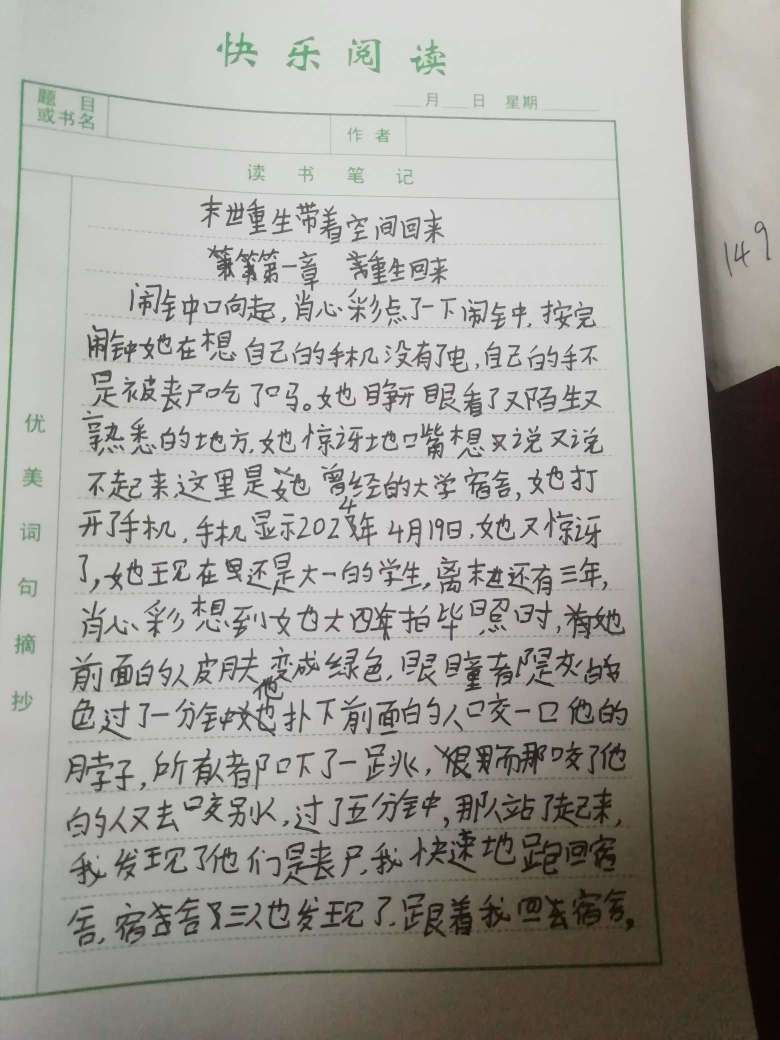 快乐阅读
月 日 星期
题目
或书名
作者
读书笔记
优美词句摘抄
149
末世重生带着空间回来
第一章 重生回来
闹钟响起，肖心彩点了一下闹钟，按完
闹钟她在想自己的手机没有了电，自己的手不
是被丧尸吃了吗。她睁开眼看了又陌生又
熟悉的地方，她惊讶地嘴想又说又说
不起来这里是她曾经的大学宿舍，她打
开了手机，手机显示2024年4月19日，她又惊讶
了，她现在还是大一的学生，离末世还有三年，
肖心彩想到她大四年拍毕照时，有她
前面的人皮肤变成绿色，眼瞳都是灰白的
色过了一分钟他扑下前面的人咬一口他的
脖子，所有人都吓了一跳，而那咬了他
的人又去咬别人，过了五分钟，那人站了起来，
我发现了他们是丧尸，我快速地跑回宿
舍，宿舍三人也发现了，跟着我回去宿舍。